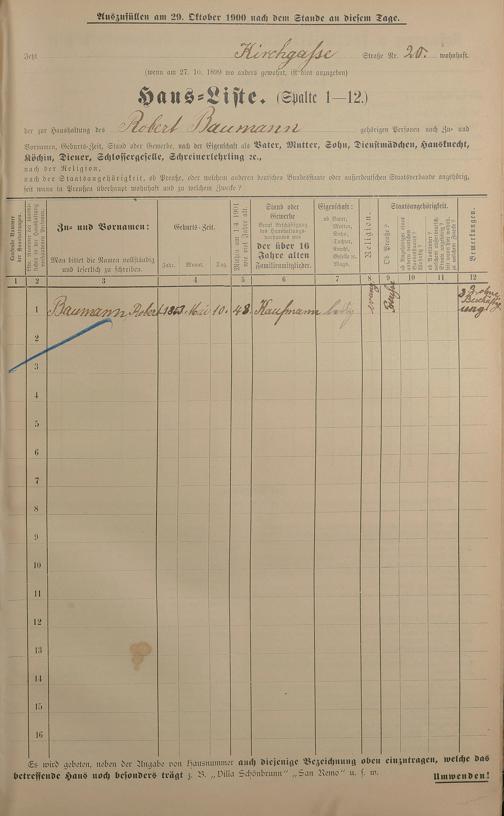 Auszufüllen am 29. Oktober 1900 nach dem Stande an diesem Tage.
Jetzt Kirchgasse Straße Nr. 20. wohnhaft.
(wenn am 27. 10. 1899 wo anders gewohnt, ist dies anzugeben)
Haus-Liste. (Spalte 1—12.)
der zur Haushaltung des Robert Baumann gehörigen Personen nach Zu- und
Vornamen, Geburts-Zeit, Stand oder Gewerbe, nach der Eigenschaft als Vater, Mutter, Sohn, Dienstmädchen, Hausknecht,
Köchin, Diener, Schlossergeselle, Schreinerlehrling ec.,
nach der Religion,
nach der Staatsangehörigkeit, ob Preuße, oder welchem anderen deutschen Bundesstaate oder außerdeutschen Staatsverbande angehörig,
seit wann in Preußen überhaupt wohnhaft und zu welchem Zwecke?
Laufende Nummer der Haushaltungen.
Zu- und Vornamen:
Man bittet die Namen vollständig und leserlich zu schreiben.
Geburts-Zeit.
Jahr. Monat. Tag.
Mithin am 1.4. 1901 wie viel Jahre alt
Stand oder Gewerbe
der über 16 Jahre alten Familienmitglieder.
Eigenschaft:
ob Vater, Mutter, Sohn, Tochter, Knecht, Geselle, Magd.
Religion.
Staatsangehörigkeit.
Ob Preuße?
Bemerkungen.
1 2 3 4 5 6 7 8 9 10 11 12
1 Baumann Robert Mai 10. 48 Kaufmann ledig evang. Preuße
2
3
4
5
6
7
8
9
10
11
12
13
14
15
16
Es wird gebeten, neben der Angabe von Hausnummer auch diejenige Bezeichnung oben einzutragen, welche das
betreffende Haus noch besonders trägt z. B. „Villa Schönbrunn" „San Remo" u. s. w.
Umwenden!